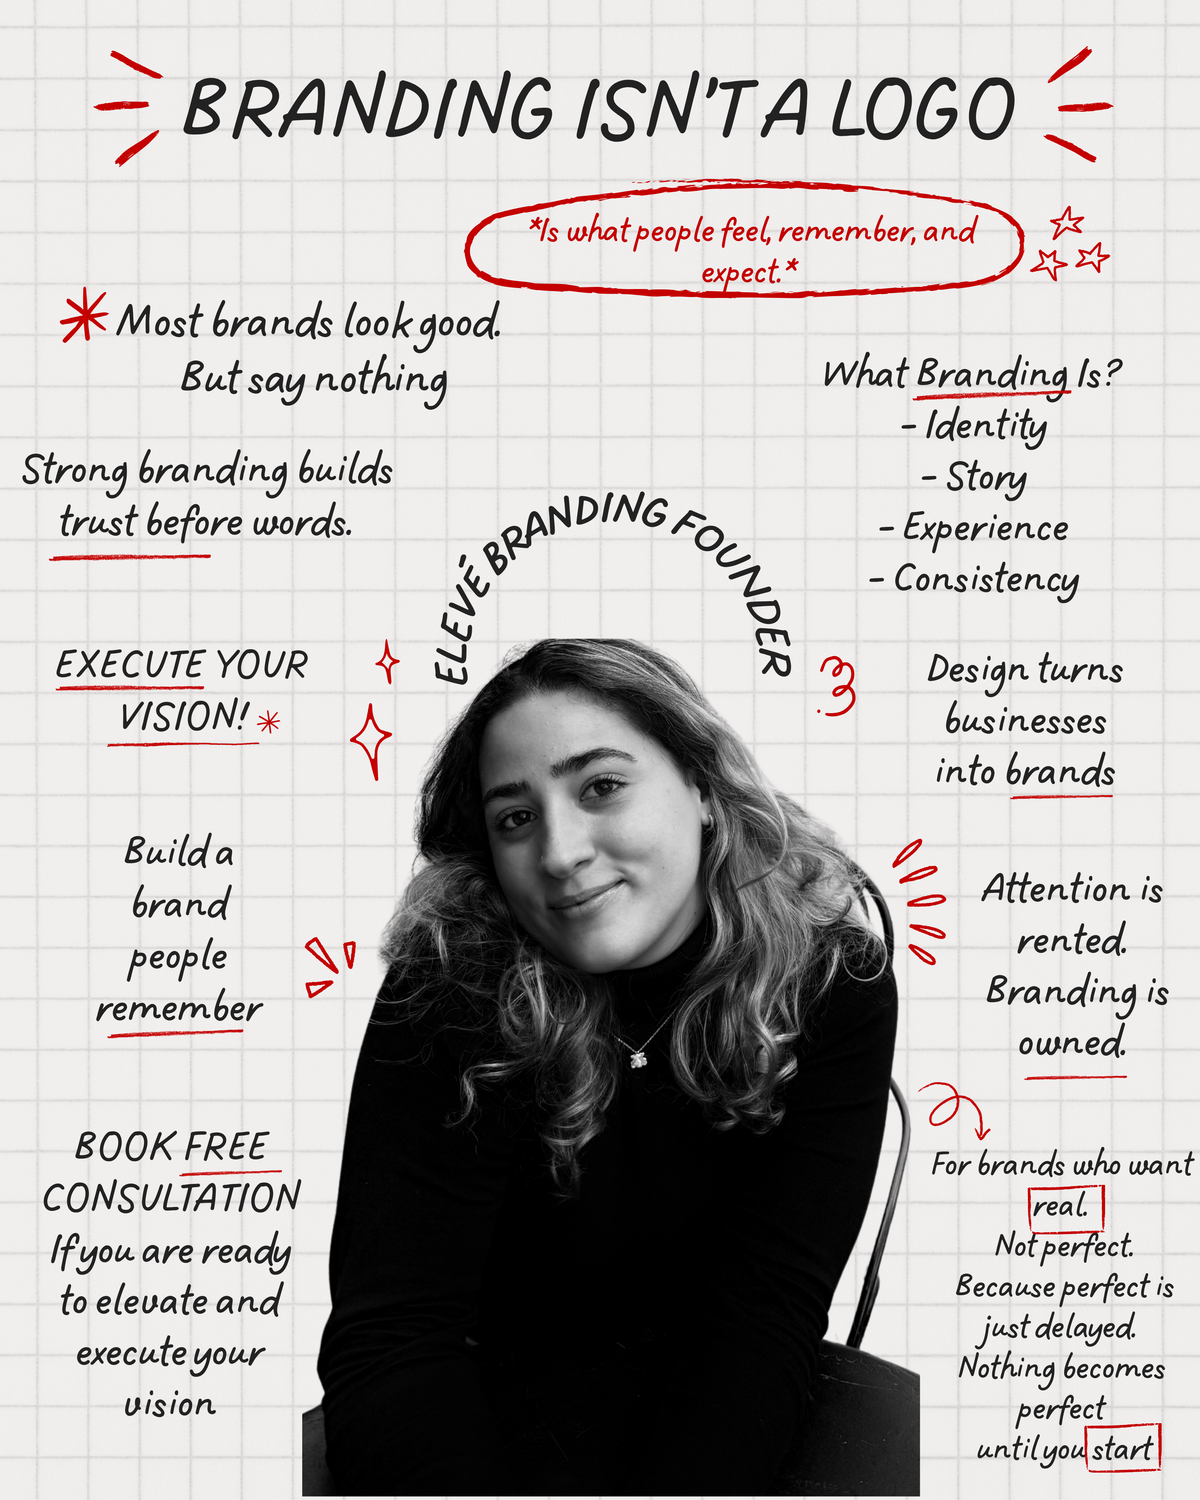 BRANDING ISN'T A LOGO
*Is what people feel, remember, and
expect.*
Most brands look good.
But say nothing
What Branding Is?
- Identity
- Story
- Experience
- Consistency
Strong branding builds
trust before words.
ELEVÉ BRANDING FOUNDER
EXECUTE YOUR
VISION!
Design turns
businesses
into brands
Build a
brand
people
remember
Attention is
rented.
Branding is
owned.
BOOK FREE
CONSULTATION
If you are ready
to elevate and
execute your
vision
For brands who want
real.
Not perfect.
Because perfect is
just delayed.
Nothing becomes
perfect
until you start